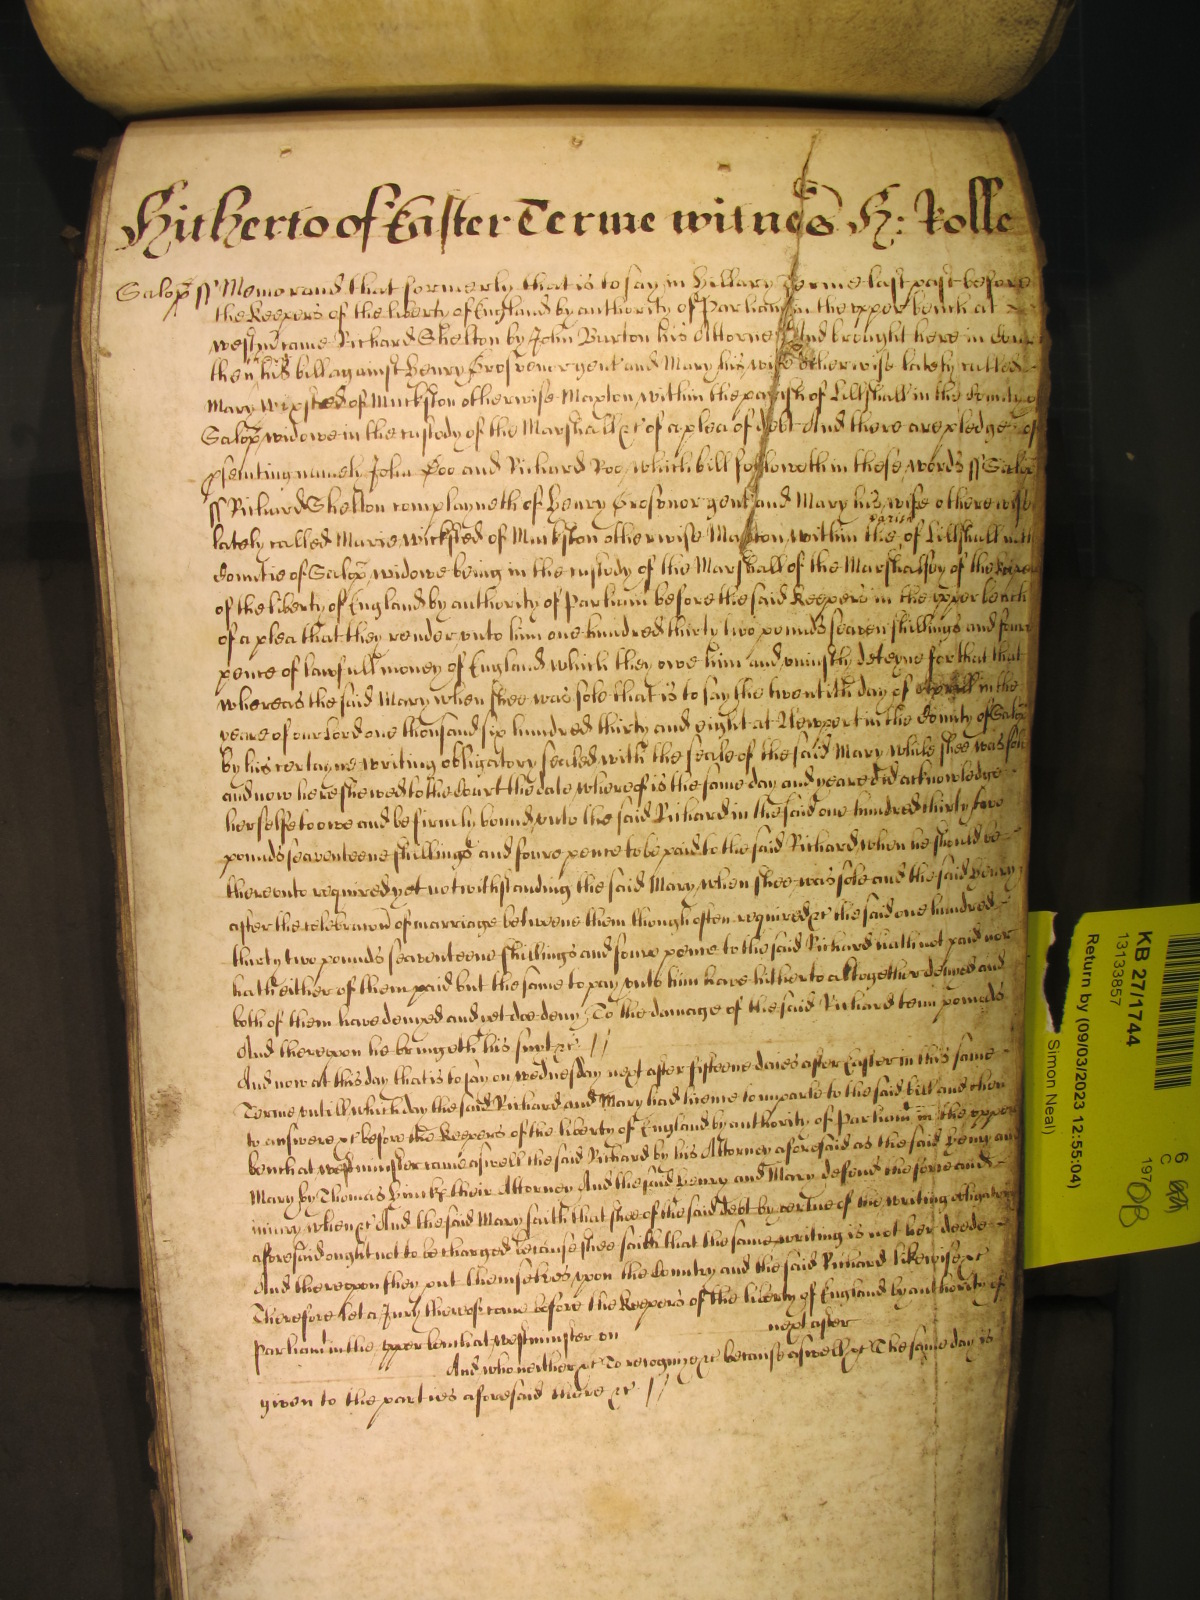 Hitherto of Easter Terme witnes H: Rolle
Salop ss Memorand that formerly that is to say in Hillary Terme last past before
the Keepers of the liberty of England by authority of Parliam in the upper bench at
westm came Richard Shelton by John Burton his Attorney And brought here in Court
then his bill against Henry Grosvenor gent and Mary his wife otherwise lately called
Mary Wixsted of Muckston otherwise Maxton within the parish of Lillshall in the County of
Salop widowe in the custody of the Marshall &c of a plea of debt And there are pledges of
psecuting namely John Doo and Richard Roo which bill followeth in these words ss Salop
ss Richard Shelton complayneth of Henry Grosvonor gent and Mary his wife otherwise
lately called Marie Wicksted of Muckston otherwise Maxton within the parish of Lillshall in the
Countie of Salop widowe being in the custody of the Marshall of the Marshalsey of the Keepers
of the liberty of England by authority of Parliam before the said Keepers in the upper bench
of a plea that they render unto him one hundred thirty two pounds seaven shillings and foure
pence of lawfull money of England which they owe him and uniustly deteyne for that that
whereas the said Mary when shee was sole that is to say the twentith day of Aprill in the
yeare of our Lord one thousand six hundred thirty and eight at Newport in the County of Salop
by his certayne writing obligatory sealed with the seale of the said Mary while shee was sole
and now here shewed to the Court the date whereof is the same day and yeare did acknowledge
herselfe to owe and be firmly bound unto the said Richard in the said one hundred thirty two
pounds seaventeene shillings and foure pence to be paid to the said Richard when he should be
thereunto required yet notwithstanding the said Mary when shee was sole and the said Henry
after the celebracon of marriage betweene them though often required &c the said one hundred
thirty two pounds seaventeene shillings and foure pence to the said Richard hath not paid nor
hath either of them paid but the same to pay unto him have hitherto altogether denyed and
both of them have denyed and yet doe deny To the damage of the said Richard tenn pounds
And thereupon he bringeth his suit &c //
And now at this day that is to say on wednesday next after fifteene daies after Easter in this same
Terme untill which day the said Richard and Mary had licence to imparle to the said bill and then
to answere &c before the Keepers of the liberty of England by authority of Parliam in the upper
bench at westminster came aswell the said Richard by his Attorney aforesaid as the said Henry and
Mary by Thomas their Attorney And the said Henry and Mary defend the force and
iniury when &c And the said Mary saith that shee of the said debt by vertue of the writing obligatory
aforesaid ought not to be charged because shee saith that the same writing is not her deede
And thereupon they put themselves upon the Country and the said Richard likewise &c
Therefore let a Jury thereof come before the Keepers of the liberty of England by authority of
Parliam in the upper bench at westminster on next after
And who neither &c To recognize &c because aswell &c The same day is
given to the parties aforesaid there &c //
KB 27/1744
13133857
Return by (09/03/2023 12:55:04)
Simon Neal)
6
C
197